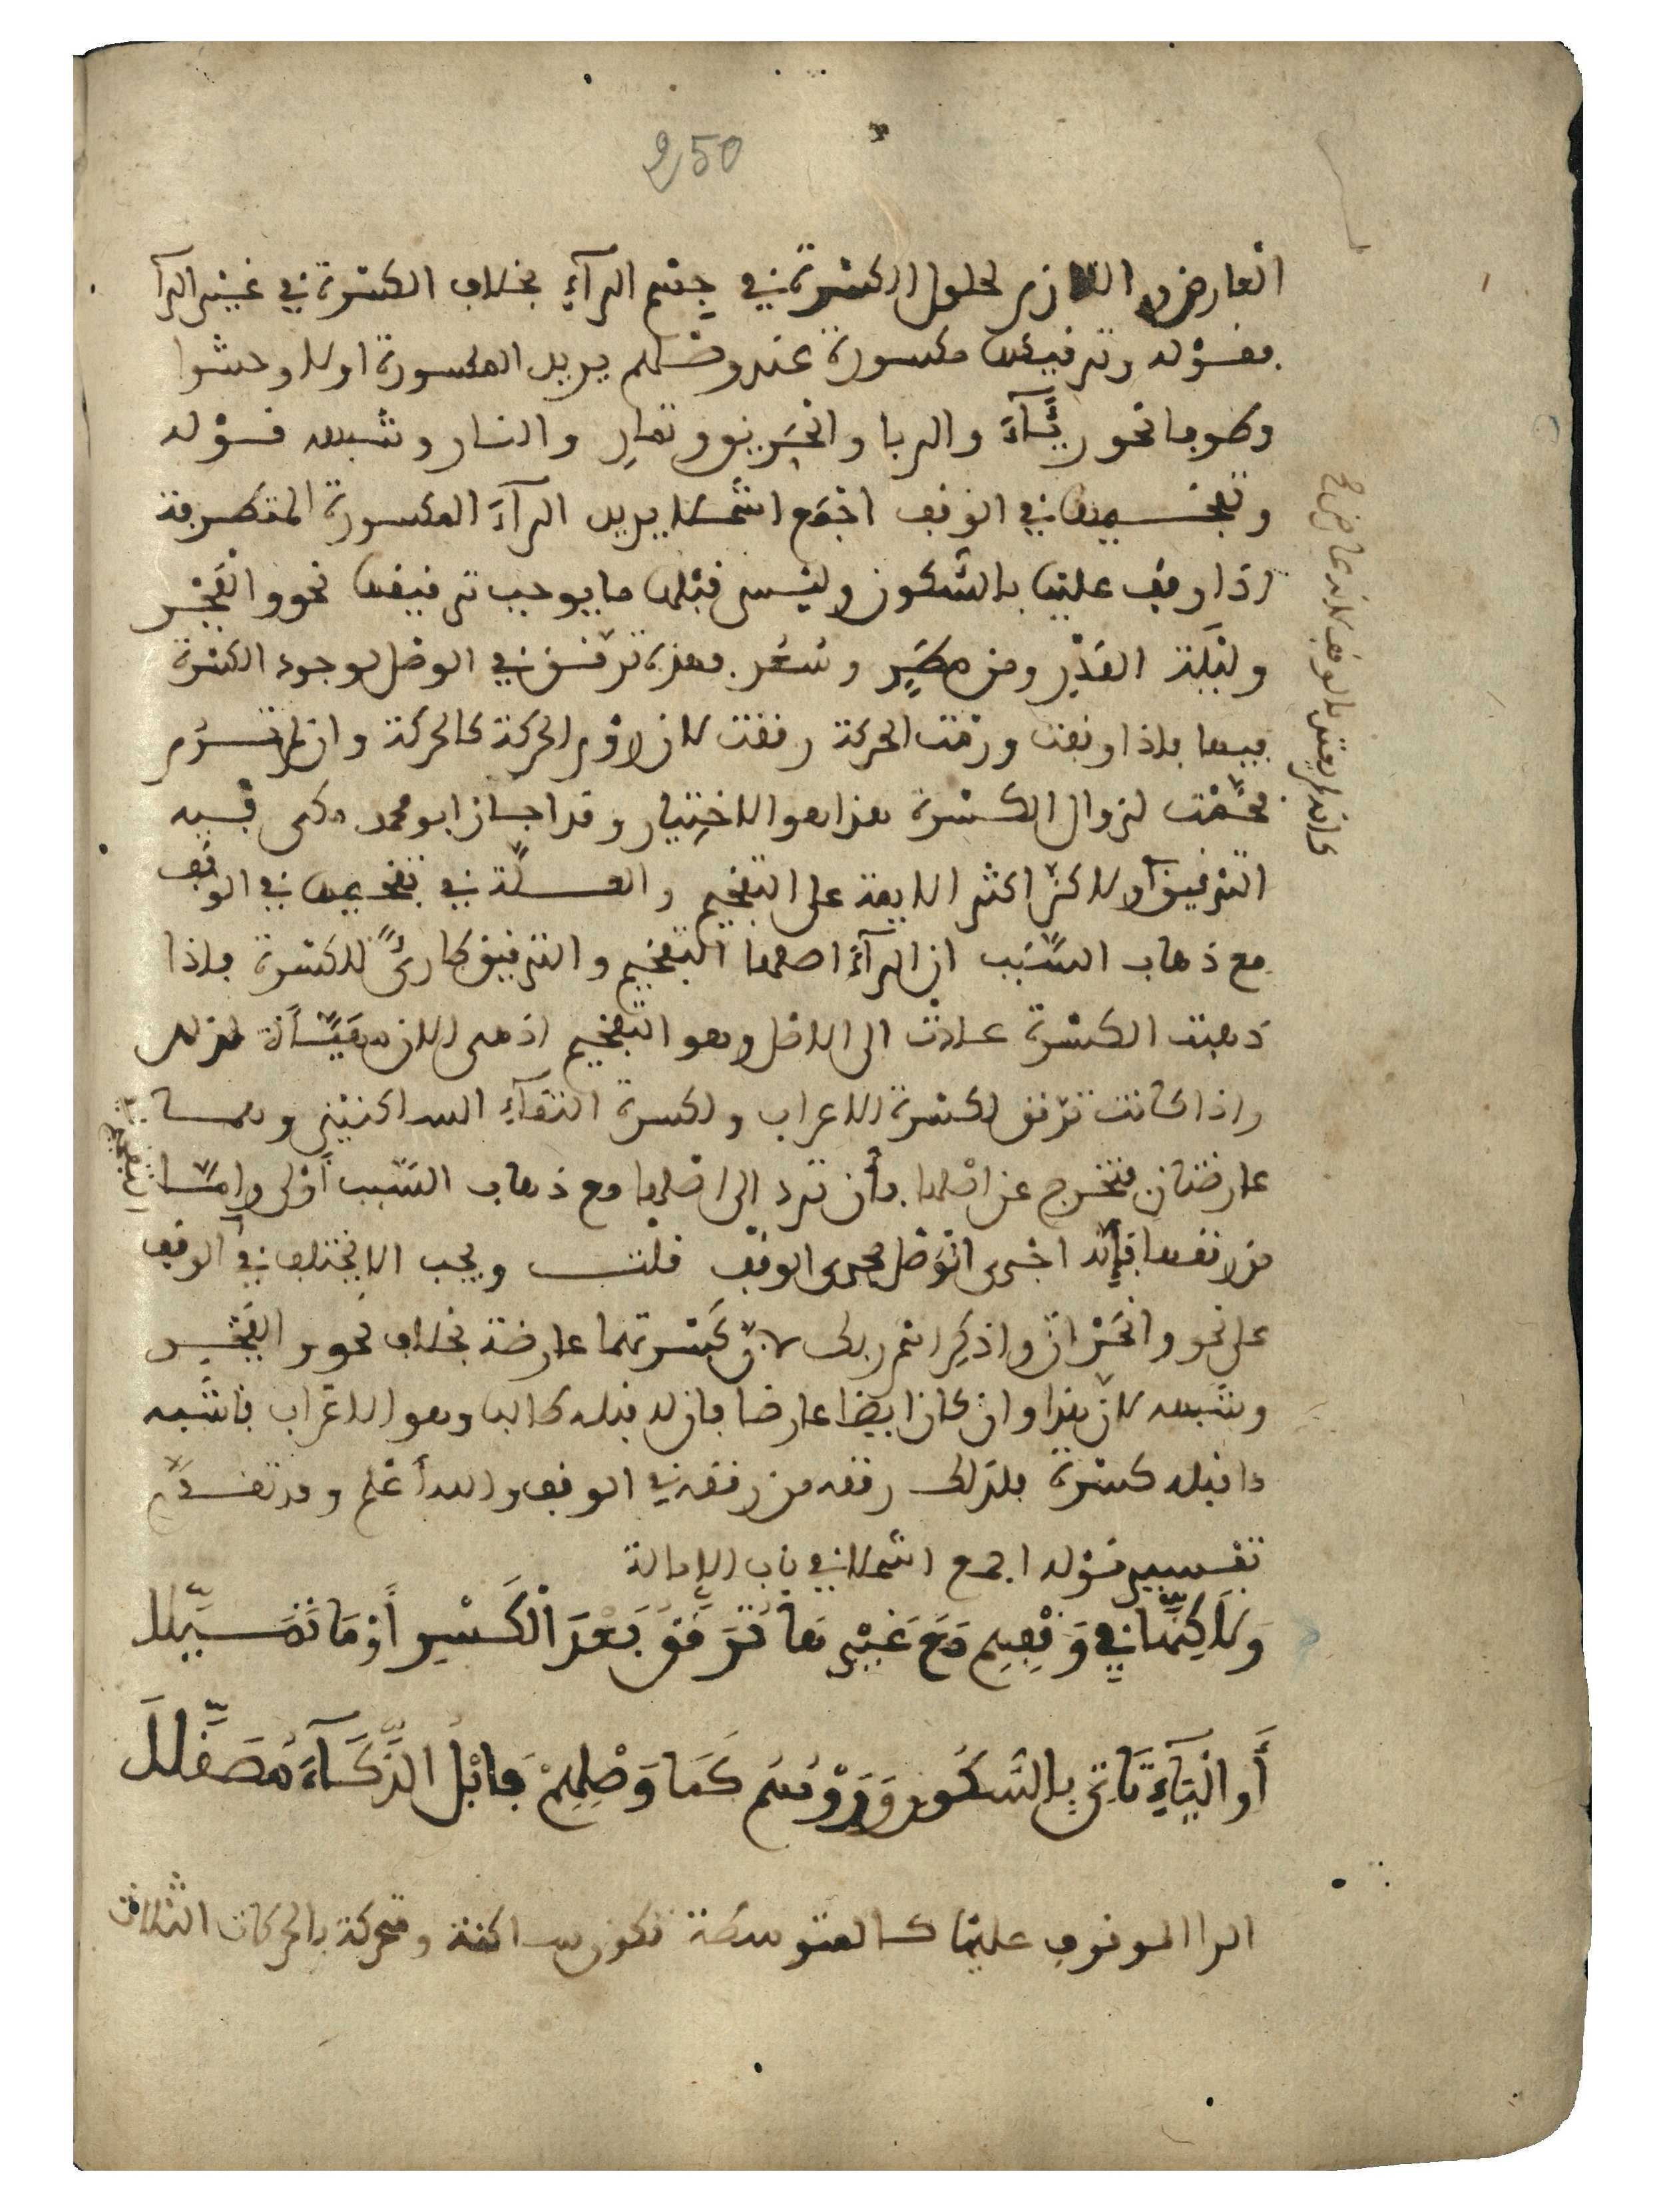 250
العارض واللازم لحلول الكسرة في جسم الرآء بخلاف الكسرة في غير الرآ
فقوله وترقيقها مكسورة عند وصلهم يريد المكسورة اولا وحشوا
وطرفا نحو رئآء والربا والحريق ونهار والنار وشبهه قوله
وتفخيمها في الوقف اجمع اشملا يريد الرآء المكسورة المتطرفة
اذا وقف عليها بالسكون وليس قبلها ما يوجب ترقيقها نحو والفجر
وليلة القدر ومن مطر وسعر فهذه ترقق في الوصل لوجود الكسرة
فيها فاذا وقفت ورمت الحركة رققت لان روم الحركة كالحركة وان لم ترم
فخمت لزوال الكسرة هذا هو الاختيار وقد اجاز ابو محمد مكي فيه
الترقيق ولاكن اكثر الايمة على التفخيم والعلة في تفخيمها في الوقف
مع ذهاب السبب ان الرآء اصلها التفخيم والترقيق طارئ للكسرة فاذا
ذهبت الكسرة عادت الى الاصل وهو التفخيم اذ هي الان مهيأة لذلك
واذا كانت ترقق لكسرة الاعراب ولكسرة التقآء الساكنين وهما
عارضتان فتخرج عن اصلها فأن ترد الى اصلها مع ذهاب السبب أولى واما
من رققها فإنه اجرى الوصل مجرى الوقف قلت ويجب الا يختلف في الوقف
على نحو وانحر ان واذكر اسم ربك لان كسرتهما عارضة بخلاف نحو والفجر
وشبهه لان هذا وان كان ايضا عارضا فان له قبله طالبا وهو الاعراب فاشبه
ما قبله كسرة فلذلك رققه من رققه في الوقف والله أعلم وقد تقدم
تفسير قوله اجمع اشملا في باب الإمالة
وَلَاكِنَّهَا فِي وَقْفِهِم مَعَ غَيْرِهَا تُرَقَّقُ بَعْدَ الْكَسْرِ أَوْ مَا تَمَيَّلَا
أَوِ الْيَآءِ تَاتِي بِالسُّكُونِ وَرَوْمُهُم كَمَا وَصْلِهِمْ فَابْلُ الذَّكَآءَ مُصَقَّلَا
الرا الموقوف عليها كالمتوسطة تكون ساكنة ومتحركة بالحركات الثلاث